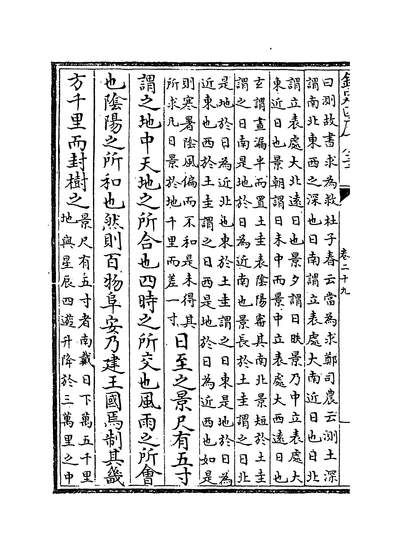 卷二十九
曰測故書求為救杜子春云當為求鄭司農云測土深
謂南北東西之深也日南謂立表處大南近日也日北
謂立表處大北遠日也景夕謂日昳景乃中立表處大
東近日也景朝謂日未中而景中立表處大西遠日也
玄謂晝漏半而置土圭表陰陽審其南北景短於土圭
謂之日南是地於日為近南也景長於土圭謂之日北
是地於日為近北也東於土圭謂之日東是地於日為
近東也西於土圭謂之日西是地於日為近西也如是
則寒暑陰風偏而不和是未得其
所求凡日景於地千里而差一寸
日至之景尺有五寸
謂之地中天地之所合也四時之所交也風雨之所會
也陰陽之所和也然則百物阜安乃建王國焉制其畿
方千里而封樹之
景尺有五寸者南戴日下萬五千里
地與星辰四遊升降於三萬里之中